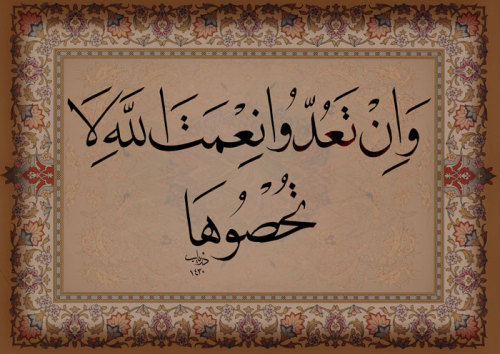 وَاِنْ تَعُدُّوا نِعْمَتَ اللّٰهِ لَا
تُحْصُوهَا
١٤٢٠